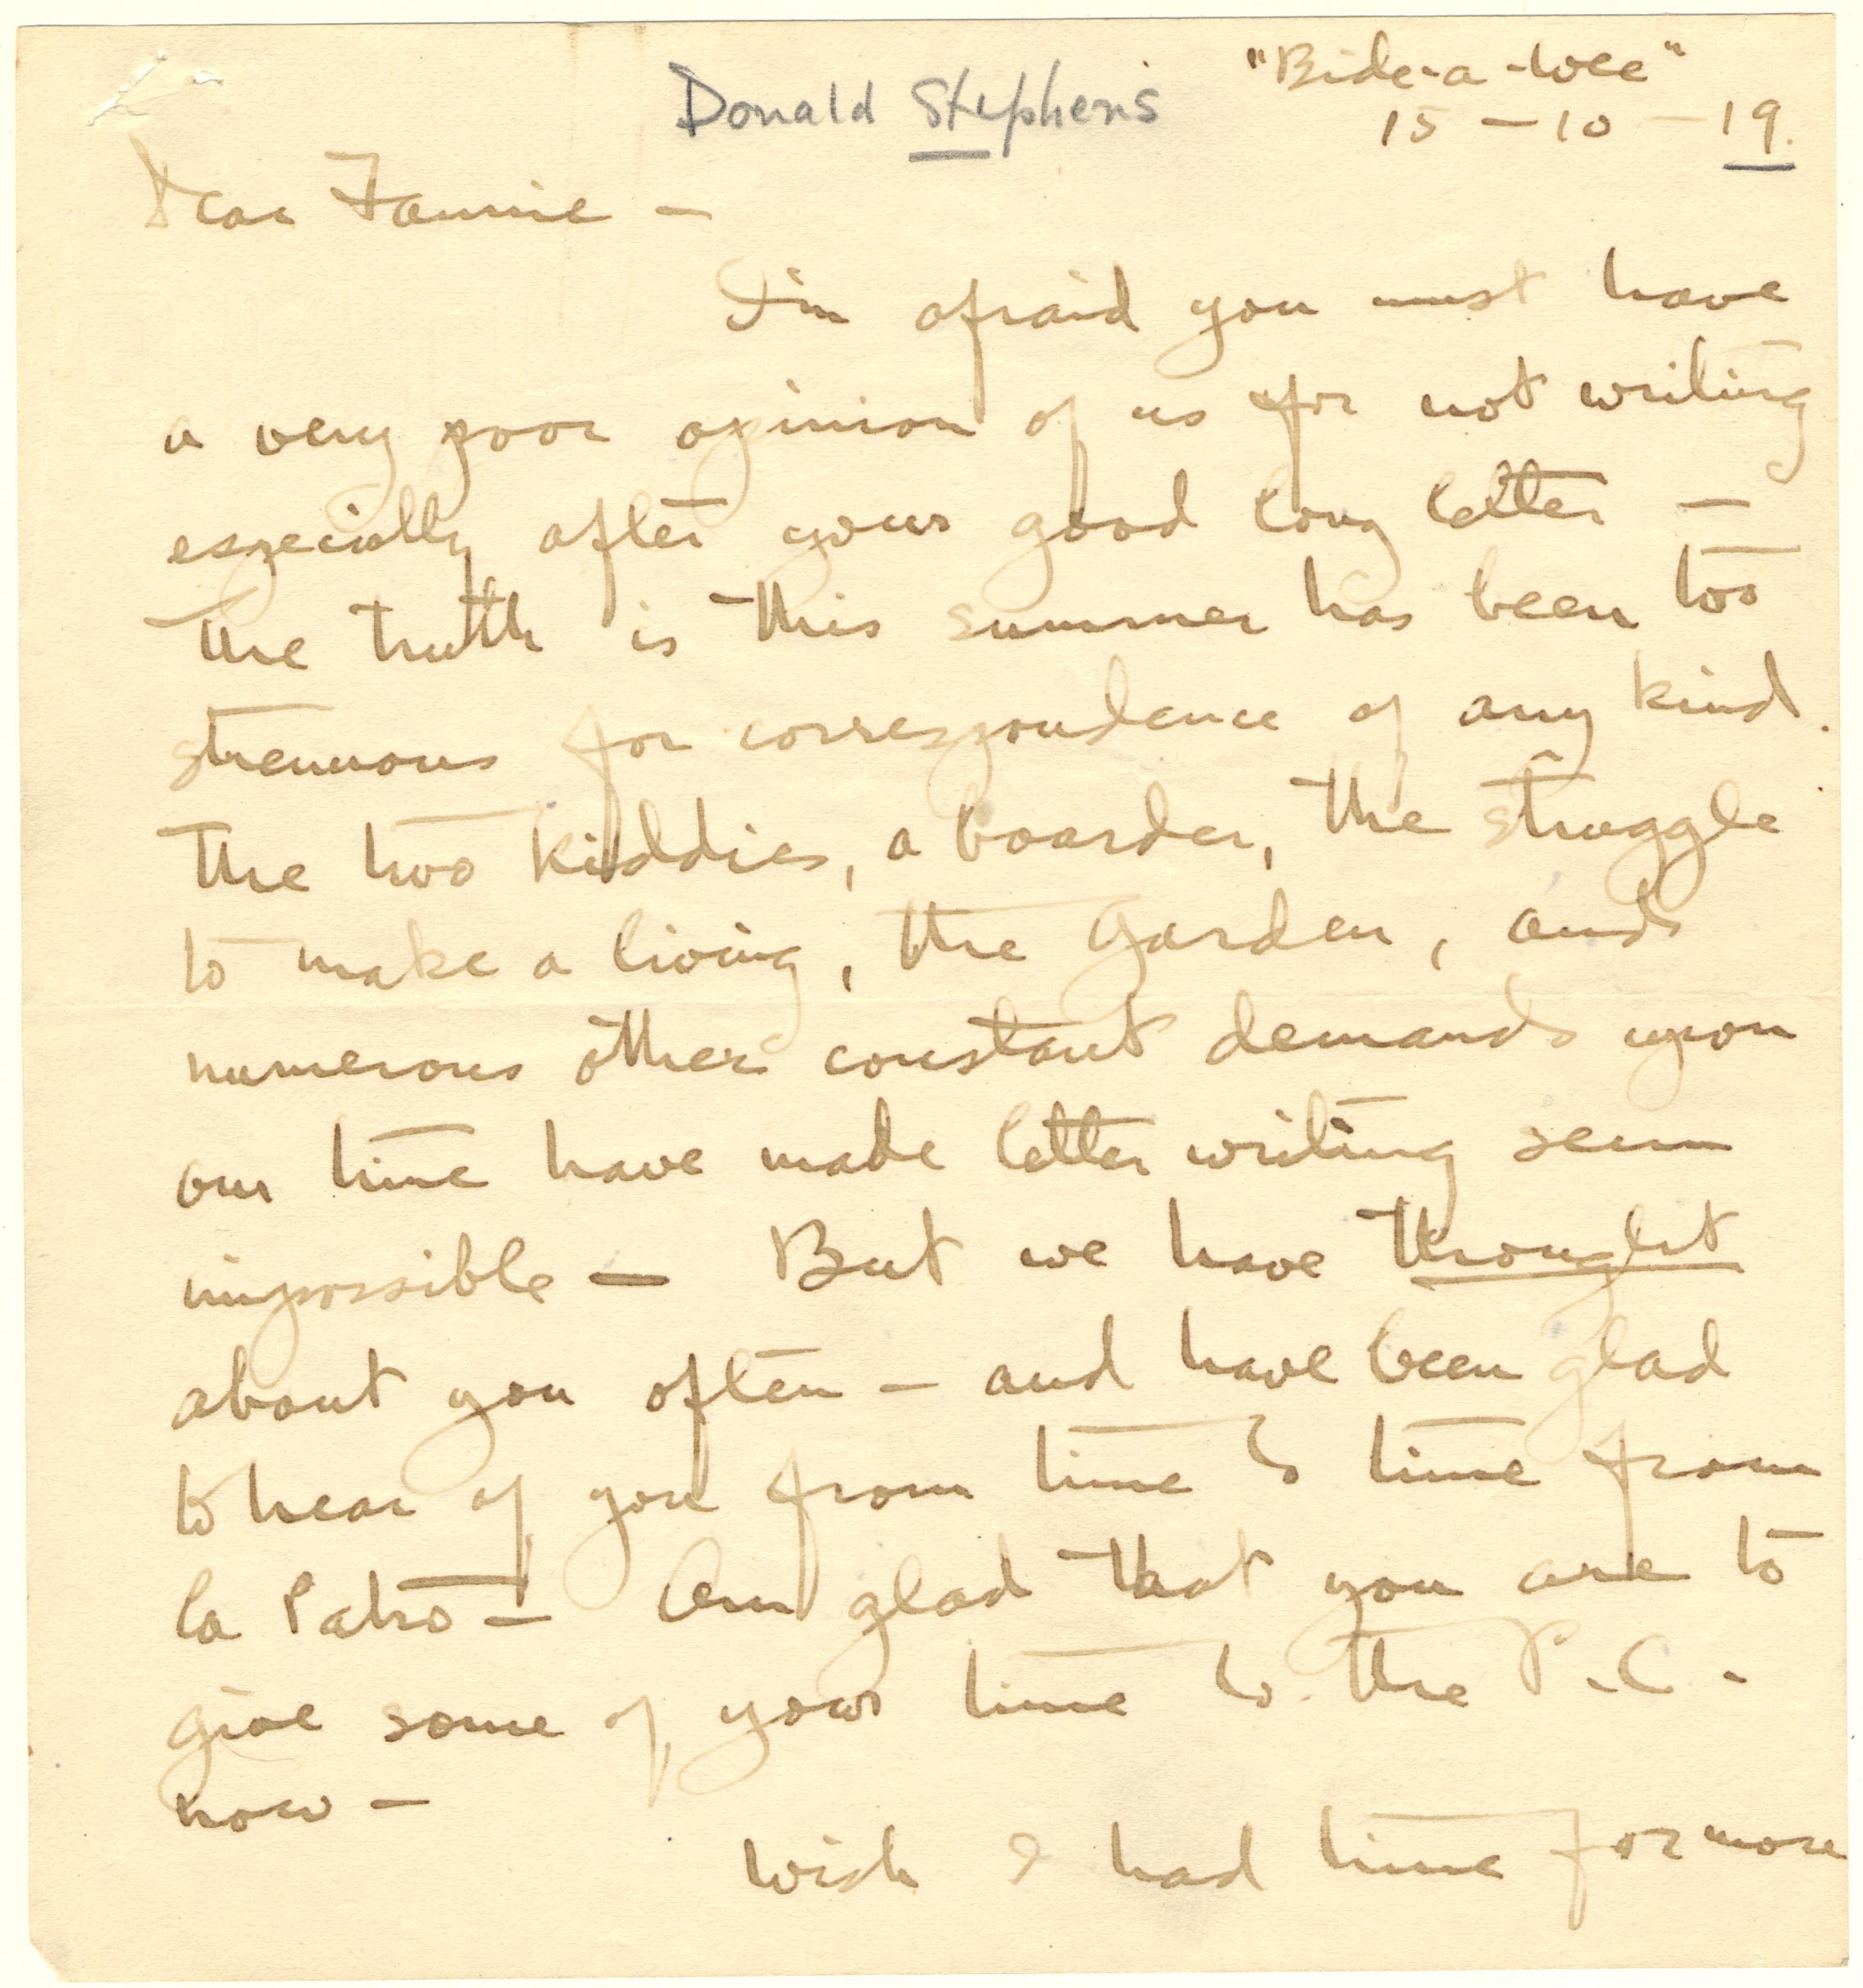 Donald Stephens
"Bide-a-wee"
15-10-19.
Dear Fannie -
I'm afraid you must have
a very poor opinion of us for not writing
especially after your good long letter -
The truth is this summer has been too
strenuous for correspondence of any kind.
The two kiddies, a boarder, the struggle
to make a living, the garden, and
numerous other constant demands upon
our time have made letter writing seem
impossible - But we have thought
about you often - and have been glad
to hear of you from time to time from
La Patro - Am glad that you are to
give some of your time to the P.C.
now -
Wish I had time for more